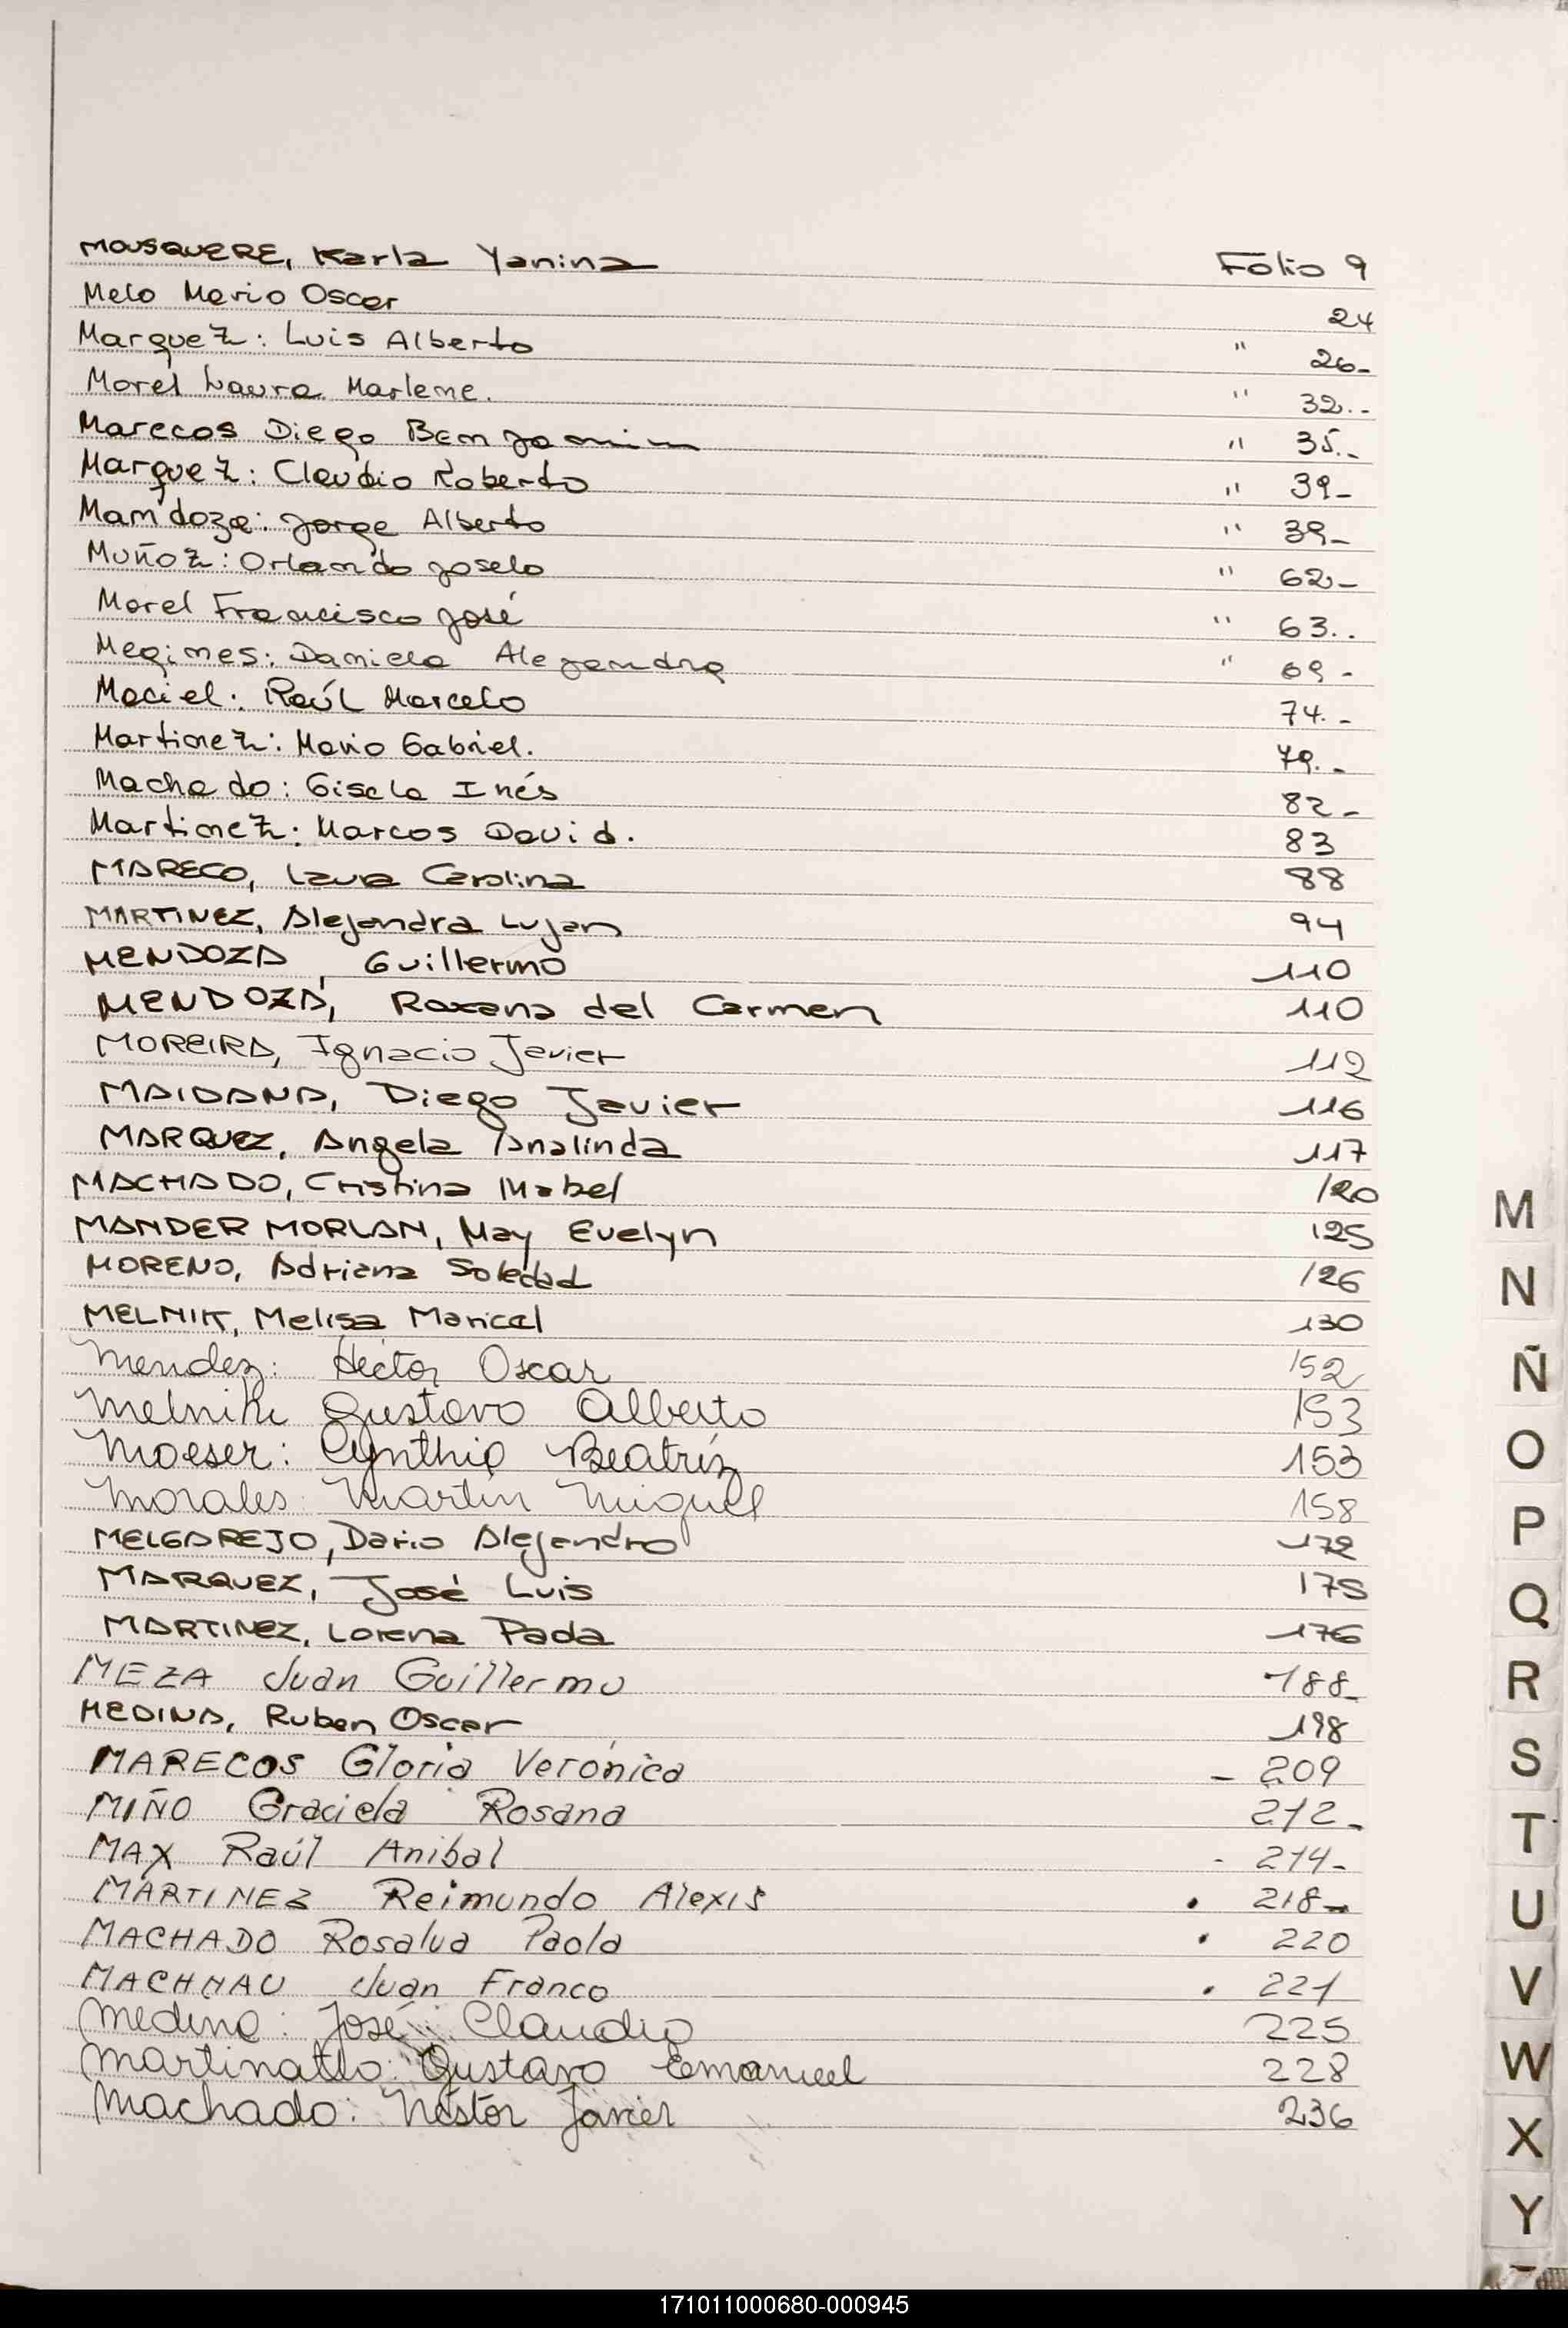 MOUSQUERE, Karla Yanina Folio 9
Melo Mario Oscar 24
Marquez: Luis Alberto " 26-
Morel Laura Marlene. " 32.-
Marecos Diego Benjamin " 35.-
Marquez: Claudio Roberto " 39-
Mandoza: Jorge Alberto " 39-
Muñoz: Orlando Joselo " 62-
Morel Francisco José " 63..
Megimes: Daniela Alejandra " 69-
Maciel: Raúl Marcelo 74.-
Martinez: Mario Gabriel. 79.-
Machado: Gisela Inés 82-
Martinez: Marcos David. 83
MARECO, Laura Carolina 88
MARTINEZ, Alejandra Lujan 94
MENDOZA, Guillermo 110
MENDOZA, Roxana del Carmen 110
MOREIRA, Ignacio Javier 112
MAIDANA, Diego Javier 116
MARQUEZ, Angela Analinda 117
MACHADO, Cristina Mabel 120
MANDER MORLAN, May Evelyn 125
MORENO, Adriana Soledad 126
MELNIK, Melisa Maricel 130
Mendez: Héctor Oscar 152
Melnik Gustavo Alberto 153
Moeser: Cynthia Beatríz 153
Morales: Martín Miguel 158
MELGAREJO, Dario Alejandro 172
MARQUEZ, José Luis 175
MARTINEZ, Lorena Paola 176
MEZA Juan Guillermo 188-
MEDINA, Ruben Oscar 198
MARECOS Gloria Verónica - 209
MIÑO Graciela Rosana 212-
MAX Raúl Anibal - 214-
MARTINEZ Reimundo Alexis . 218-
MACHADO Rosalva Paola . 220
MACHNAU Juan Franco . 221
Medina: José Claudio 225
Martinatto: Gustavo Emanuel 228
Machado: Néstor Javier 236
M
N
Ñ
O
P
Q
R
S
T
U
V
W
X
Y
171011000680-000945